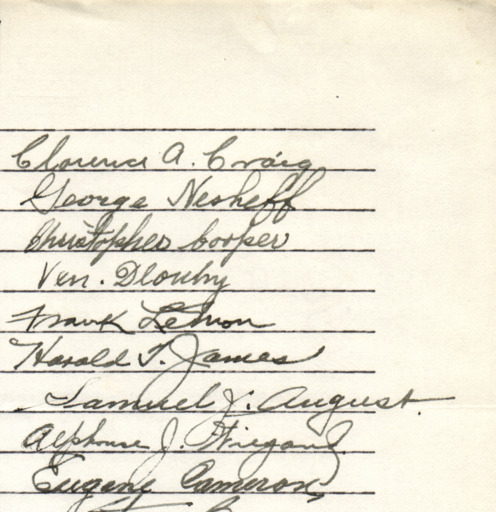 Clarence A. Craig
George Nesheff
Christopher Cooper
Ven. Dlouhy
Frank Lemon
Harold T. James
Samuel J. August
Alphonse J. Wiegand
Eugene Cameron